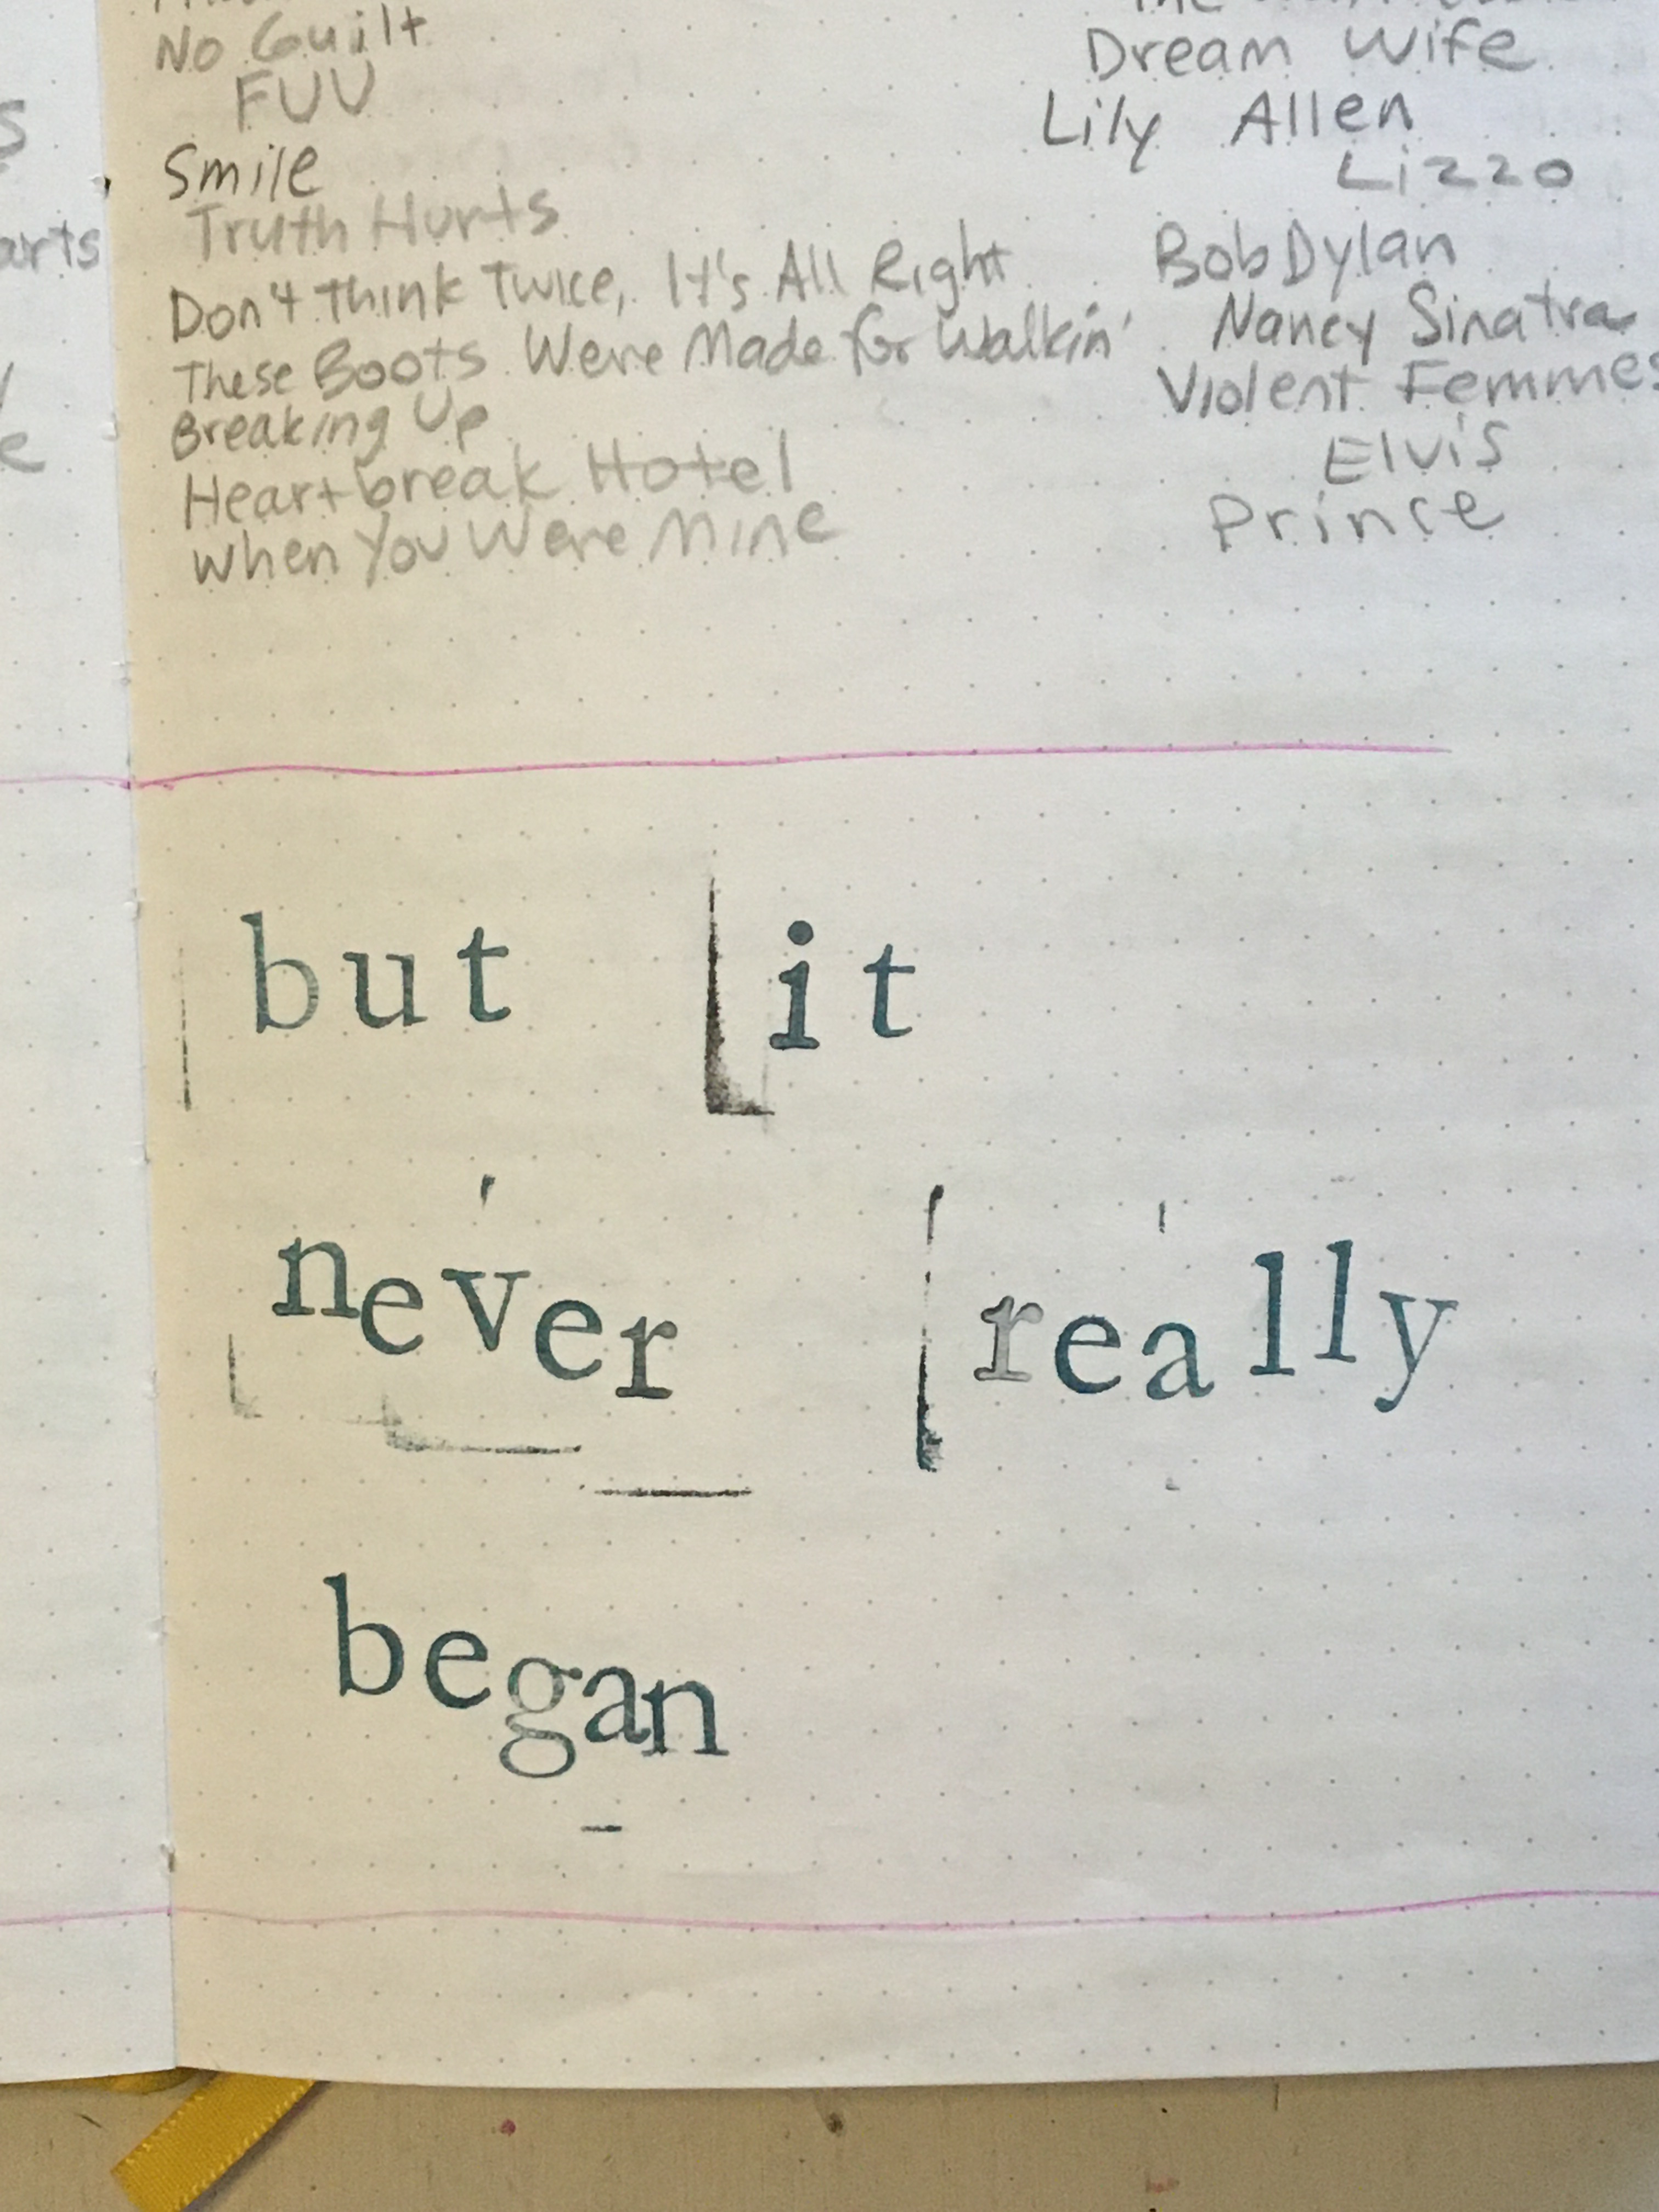 No Guilt
Dream Wife
FUU
Lily Allen
Smile
Lizzo
Truth Hurts
Don't Think Twice, It's All Right Bob Dylan
These Boots Were Made for Walkin' Nancy Sinatra
Breaking Up Violent Femmes
Heartbreak Hotel Elvis
When You Were Mine Prince
arts
but it
never really
began